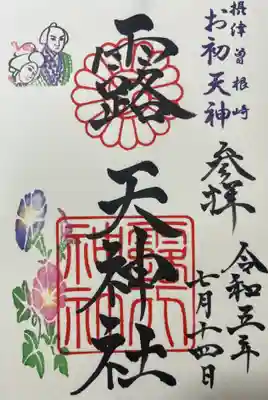 摂津曽根崎
お初天神
奉拝
令和五年
七月十四日
露
天神社
露天神社